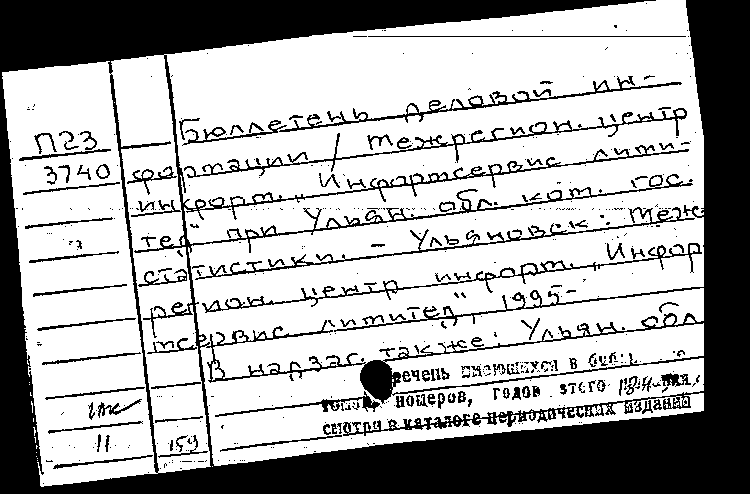 Бюллетень деловой ин-
П23
3740
формации / Межрегион. центр
информ. „Информсервис лими-
тед" при Ульян. обл. ком. гос.
статистики. – Ульяновск: Меж-
регион. центр информ. „Информ
сервис лимитед", 1995-
В надзаг. также: Ульян. обл
речень имеющихся в
томов, номеров, годов этого издания
смотри в каталоге периодических изданий
11
159